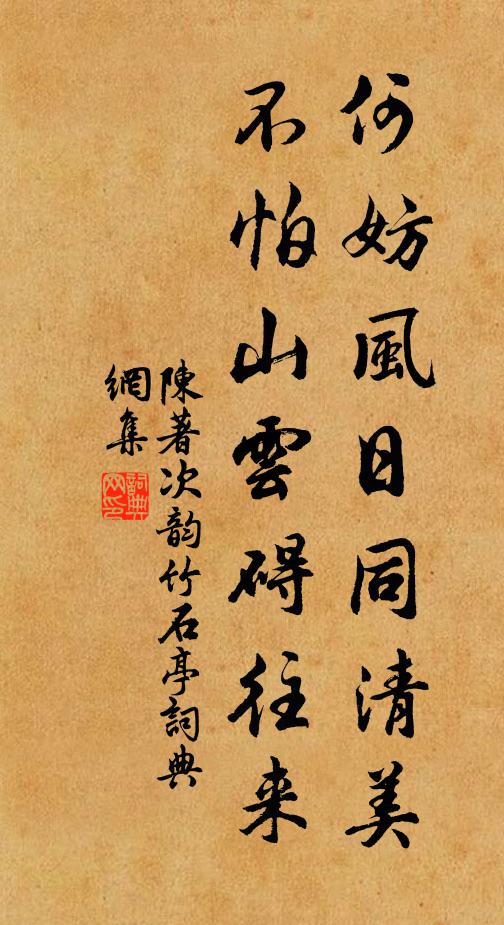 何妨風日同清美
不怕山雲碍往来
陳著次韵竹石亭詞典
網集
詞典
网印